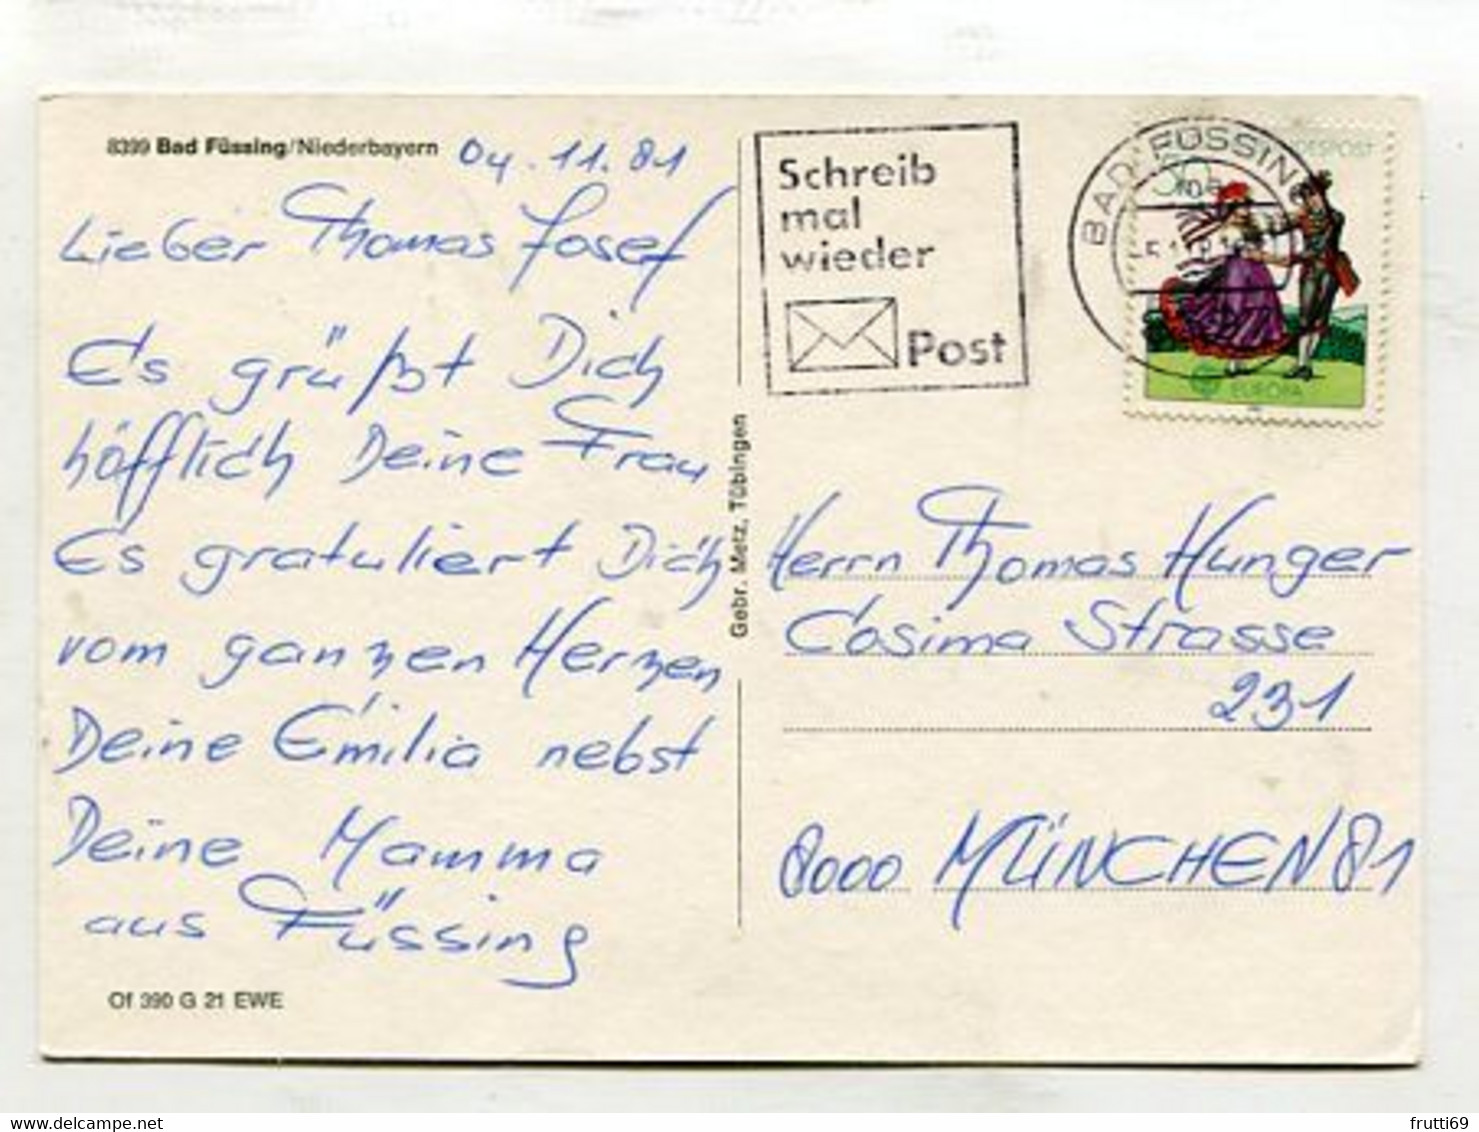 8399 Bad Füssing/Niederbayern
04.11.81
Lieber Thomas Josef
Es grüßt Dich
höfflich Deine Frau
Es gratuliert Dich
vom ganzen Herzen
Deine Emilia nebst
Deine Mamma
aus Füssing
Of 390 G 21 EWE
Gebr. Metz, Tübingen
Schreib
mal
wieder
Post
BAD FÜSSING
EUROPA
Herrn Thomas Hunger
Cosima Strasse
231
8000 MÜNCHEN 81
www.delcampe.net
frutti69